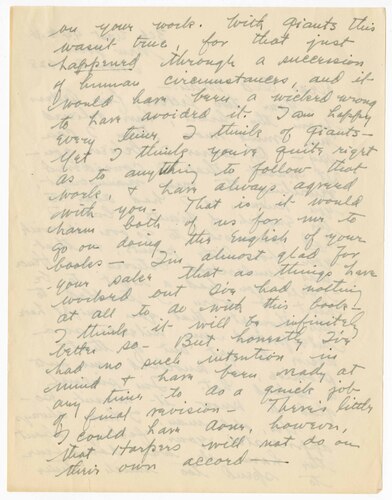 on your work. With Giants this
wasn't true, for that just
happened through a succession
of human circumstances, and it
would have been a wicked wrong
to have avoided it. I am happy
every time I think of Giants—
Yet I think you're quite right
as to anything to follow that
work, & have always agreed
with you. That is it would
harm both of us for me to
go on doing the English of your
books— I'm almost glad for
your sake that as things have
worked out I've had nothing
at all to do with this book—
I think it will be infinitely
better so— But honestly I've
had no such intention in
mind & have been ready at
any time to do a quick job
of final revision— There's little
I could have done, however,
that Harpers will not do on
their own accord—